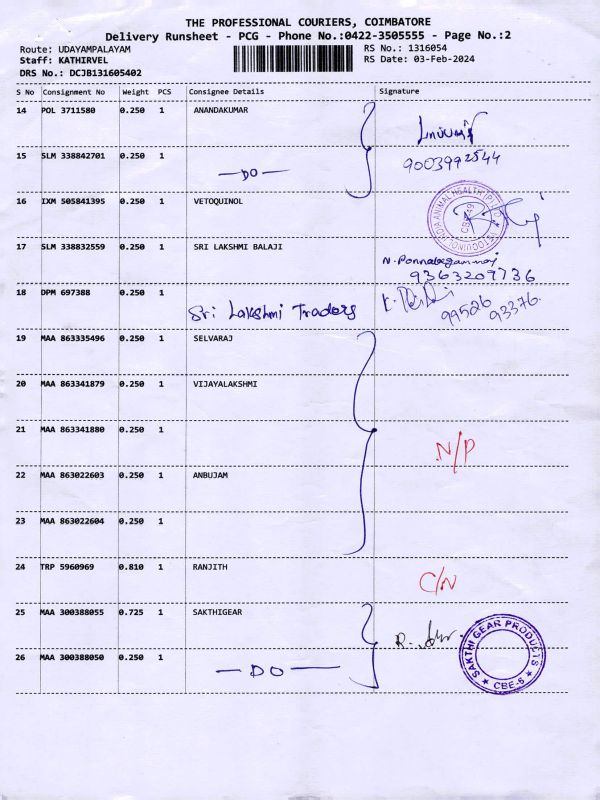 THE PROFESSIONAL COURIERS, COIMBATORE
Delivery Runsheet - PCG - Phone No.:0422-3505555 - Page No.:2
Route: UDAYAMPALAYAM RS No.: 1316054
Staff: KATHIRVEL RS Date: 03-Feb-2024
DRS No.: DCJB131605402
S No Consignment No Weight PCS Consignee Details Signature
14 POL 3711580 0.250 1 ANANDAKUMAR
15 SLM 338842701 0.250 1 —DO— 9003992544
16 IXM 505841395 0.250 1 VETOQUINOL
VETOQUINOL INDIA ANIMAL HEALTH (P) LTD
17 SLM 338832559 0.250 1 SRI LAKSHMI BALAJI
9363209736
18 DPM 697388 0.250 1 Sri Lakshmi Traders 99526 93376.
19 MAA 863335496 0.250 1 SELVARAJ
20 MAA 863341879 0.250 1 VIJAYALAKSHMI
21 MAA 863341880 0.250 1 N/P
22 MAA 863022603 0.250 1 ANBUJAM
23 MAA 863022604 0.250 1
24 TRP 5960969 0.810 1 RANJITH C/N
25 MAA 300388055 0.725 1 SAKTHIGEAR
26 MAA 300388050 0.250 1 —DO—
SAKTHI GEAR PRODUCTS
CBE-6